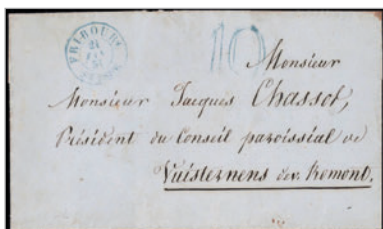 FRIBOURG
21
SUISSE
10
Monsieur
Monsieur Jacques Chassot,
Président du Conseil paroissial de
Vuisternens dev. Romont.